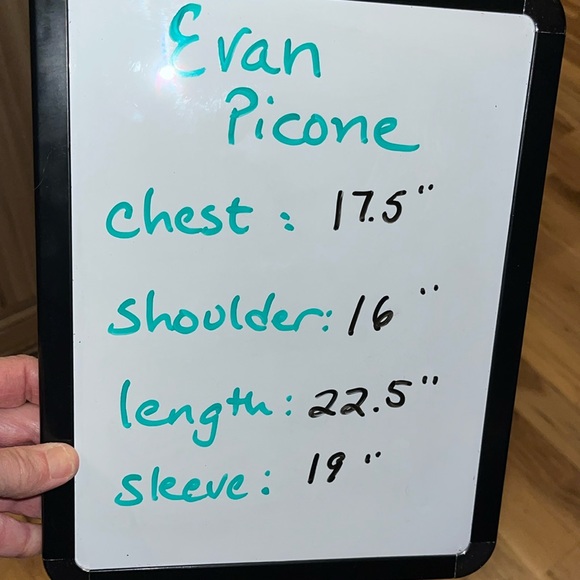 Evan
Picone
Chest: 17.5"
Shoulder: 16"
length: 22.5"
sleeve: 19"